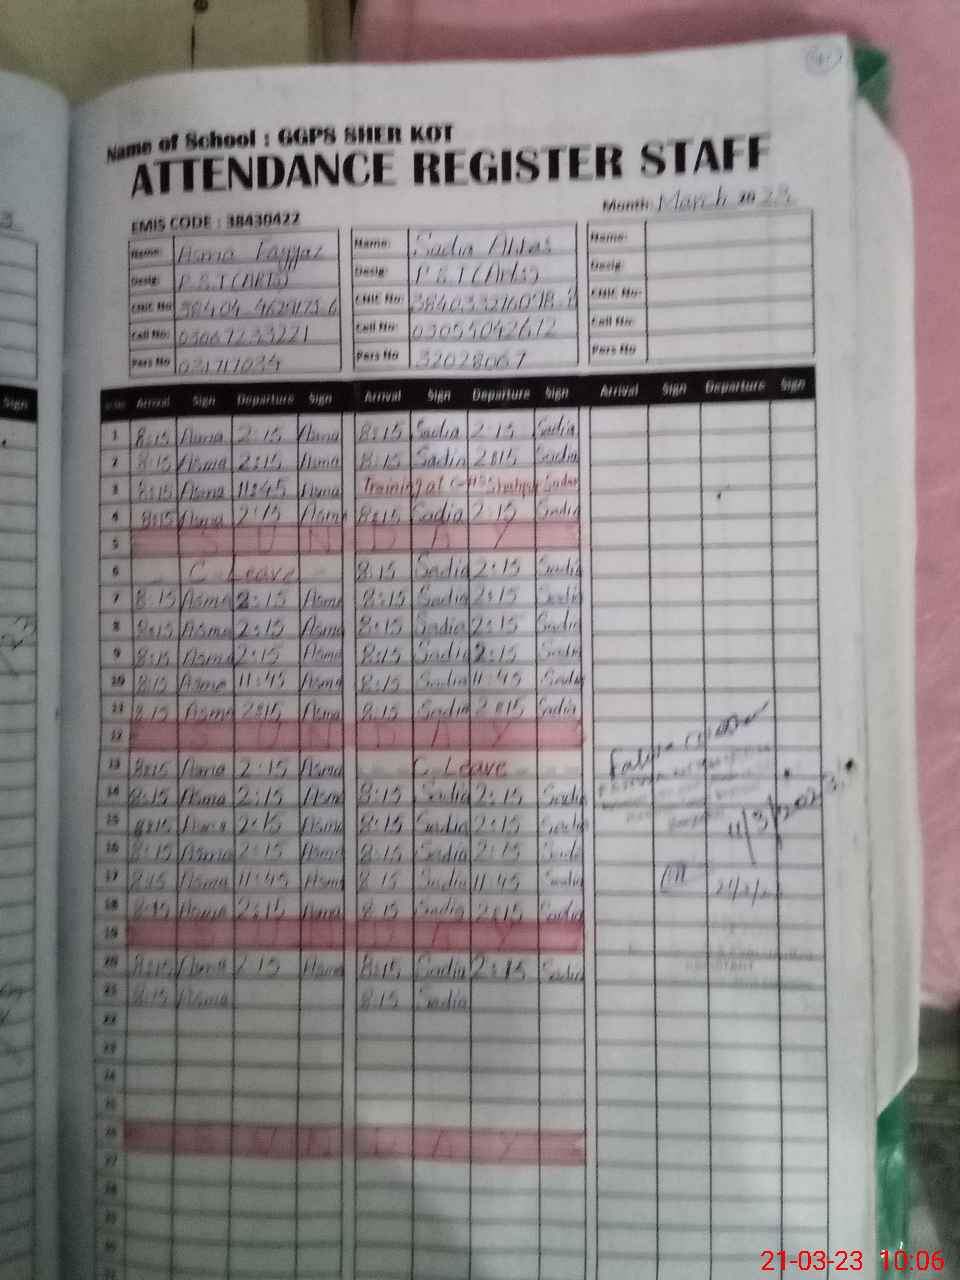 Name of School : GGPS SHER KOT
ATTENDANCE REGISTER STAFF
EMIS CODE : 38430422 Month: March 20 23
Name: Asma Fayyaz Name: Sadia Abbas Name:
Desig: P.S.T (ARTS) Desig: P.S.T (Arts) Desig:
CNIC No: CNIC No: CNIC No:
Cell No: 03067233221 Cell No: 03055042612 Cell No:
Pers No 031717034 Pers No 32028067 Pers No
Arrival Sign Departure Sign Arrival Sign Departure Sign Arrival Sign Departure Sign
1 8:15 Asma 2:15 Asma 8:15 Sadia 2:15 Sadia
2 8:15 Asma 2:15 Asma 8:15 Sadia 2:15 Sadia
3 8:15 Asma 11:45 Asma Training at Shahpur Sadar
4 8:15 Asma 2:15 Asma 8:15 Sadia 2:15 Sadia
5 S U N D A Y
6 C. Leave 8:15 Sadia 2:15 Sadia
7 8:15 Asma 2:15 Asma 8:15 Sadia 2:15 Sadia
8 8:15 Asma 2:15 Asma 8:15 Sadia 2:15 Sadia
9 8:15 Asma 2:15 Asma 8:15 Sadia 2:15 Sadia
10 8:15 Asma 11:45 Asma 8:15 Sadia 11:45 Sadia
11 8:15 Asma 2:15 Asma 8:15 Sadia 2:15 Sadia
12 S U N D A Y
13 8:15 Asma 2:15 Asma C. Leave
14 8:15 Asma 2:15 Asma 8:15 Sadia 2:15 Sadia
15 8:15 Asma 2:15 Asma 8:15 Sadia 2:15 Sadia
16 8:15 Asma 2:15 Asma 8:15 Sadia 2:15 Sadia
17 8:15 Asma 11:45 Asma 8:15 Sadia 11:45 Sadia
18 8:15 Asma 2:15 Asma 8:15 Sadia 2:15 Sadia
19 S U N D A Y
20 8:15 Asma 2:15 Asma 8:15 Sadia 2:15 Sadia
21 8:15 Asma 8:15 Sadia
22
23
24
25
26 S U N D A Y
27
28
29
30
11/3/2023
ASSISTANT
Sign
21-03-23 10:06